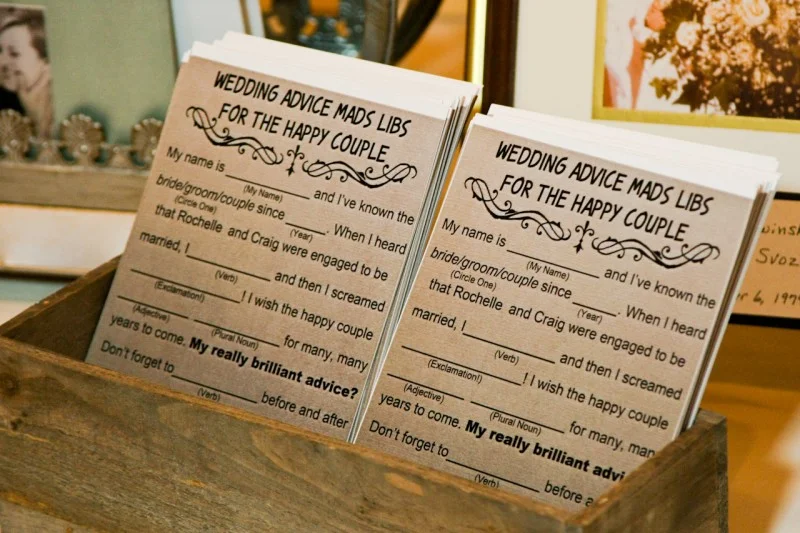 WEDDING ADVICE MADS LIBS
FOR THE HAPPY COUPLE
My name is ____________ and I've known the
(My Name)
bride/groom/couple since ______. When I heard
(Circle One) (Year)
that Rochelle and Craig were engaged to be
married, I ____________ and then I screamed
(Verb)
____________! I wish the happy couple
(Exclamation!)
____________ ____________ for many, many
(Adjective) (Plural Noun)
years to come. My really brilliant advice?
Don't forget to ____________ before and after
(Verb)
WEDDING ADVICE MADS LIBS
FOR THE HAPPY COUPLE
My name is ____________ and I've known the
(My Name)
bride/groom/couple since ______. When I heard
(Circle One) (Year)
that Rochelle and Craig were engaged to be
married, I ____________ and then I screamed
(Verb)
____________! I wish the happy couple
(Exclamation!)
____________ ____________ for many, man
(Adjective) (Plural Noun)
years to come. My really brilliant advi
Don't forget to ____________ before a
(Verb)